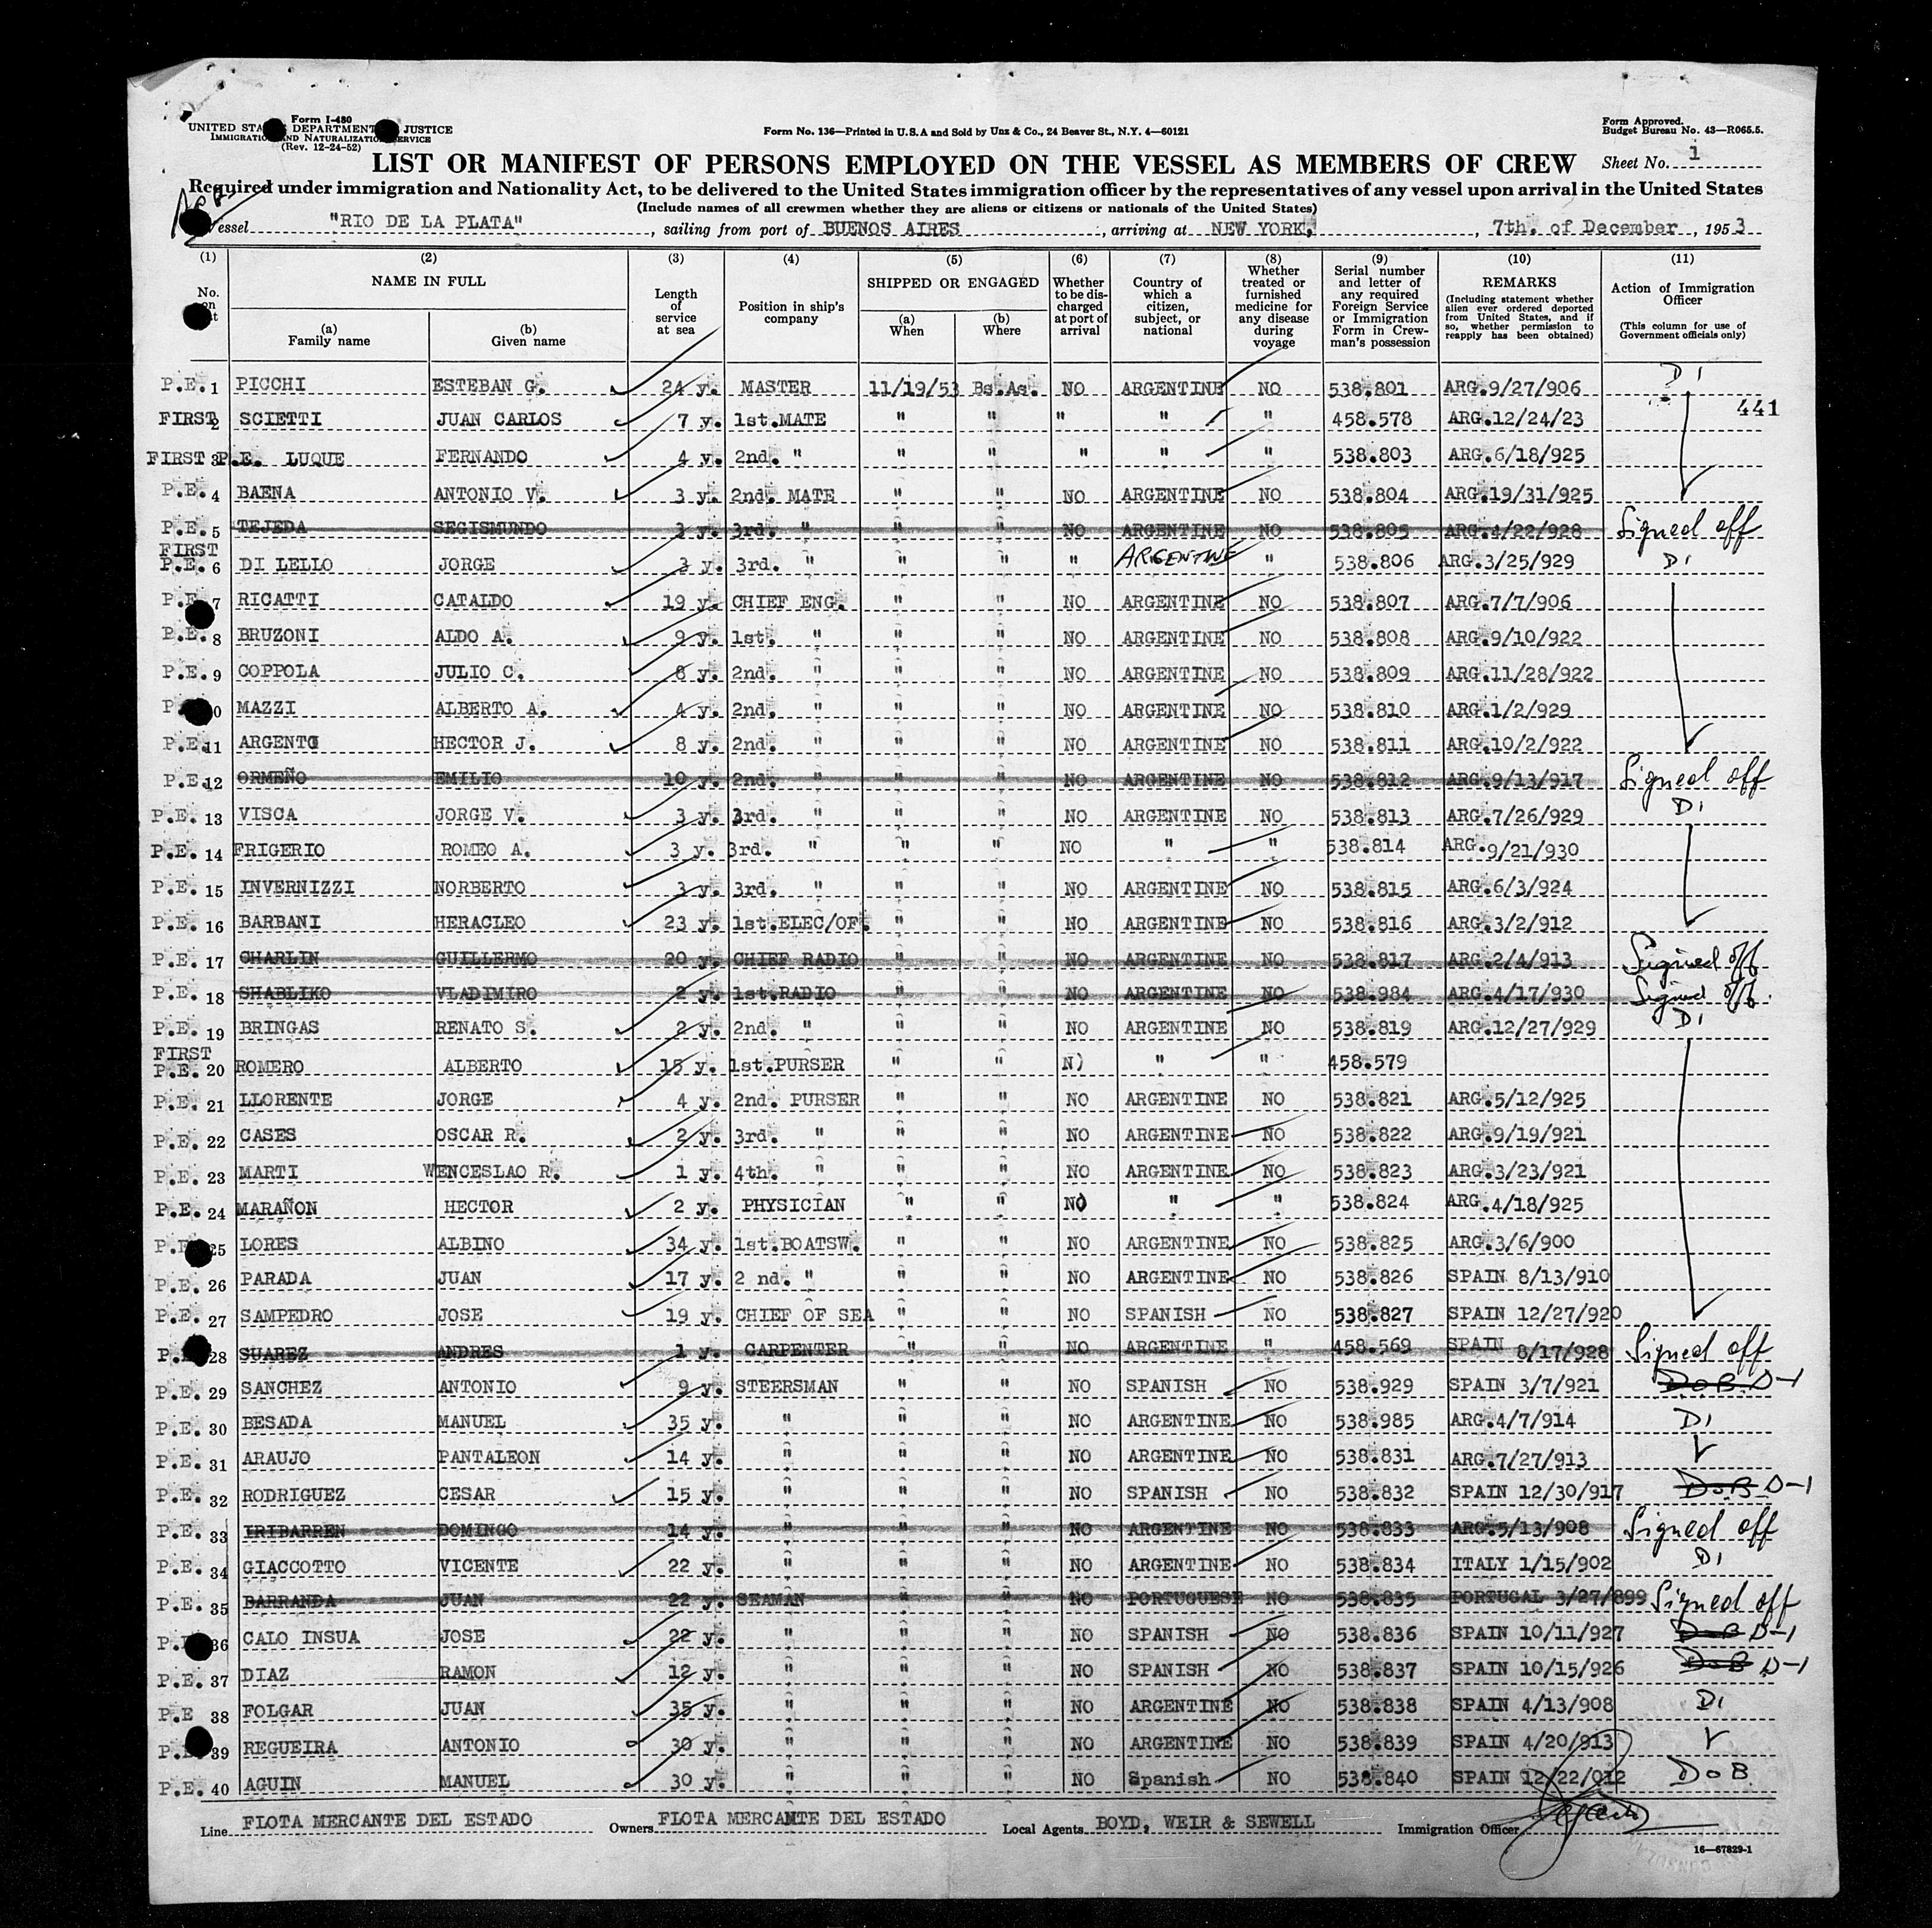 Form I-480
UNITED STATES DEPARTMENT OF JUSTICE
IMMIGRATION AND NATURALIZATION SERVICE
(Rev. 12-24-52)
Form No. 136—Printed in U.S.A and Sold by Unz & Co., 24 Beaver St., N.Y. 4—60121
Form Approved.
Budget Bureau No. 43—R065.5.
LIST OR MANIFEST OF PERSONS EMPLOYED ON THE VESSEL AS MEMBERS OF CREW
Sheet No. 1
Required under immigration and Nationality Act, to be delivered to the United States immigration officer by the representatives of any vessel upon arrival in the United States
(Include names of all crewmen whether they are aliens or citizens or nationals of the United States)
Vessel "RIO DE LA PLATA", sailing from port of BUENOS AIRES, arriving at NEW YORK, 7th. of December, 1953
(1) (2) (3) (4) (5) (6) (7) (8) (9) (10) (11)
No. on NAME IN FULL (a) Family name (b) Given name
Length of service at sea
Position in ship's company
SHIPPED OR ENGAGED (a) When (b) Where
Whether to be discharged at port of arrival
Country of which a citizen, subject, or national
Whether treated or furnished medicine for any disease during voyage
Serial number and letter of any required Foreign Service or Immigration Form in Crewman's possession
REMARKS (Including statement whether alien ever ordered deported from United States, and if so, whether permission to reapply has been obtained)
Action of Immigration Officer (This column for use of Government officials only)
P.E. 1 PICCHI ESTEBAN G. 24 y. MASTER 11/19/53 Bs.As. NO ARGENTINE NO 538.801 ARG.9/27/906 D1
441
FIRST 2 SCIETTI JUAN CARLOS 7 y. 1st.MATE " " " " " 458.578 ARG.12/24/23
FIRST 3 P.E. LUQUE FERNANDO 4 y. 2nd. " " " " " " 538.803 ARG.6/18/925
P.E. 4 BAENA ANTONIO V. 3 y. 2nd. MATE " " NO ARGENTINE NO 538.804 ARG.19/31/925
P.E. 5 TEJEDA SEGISMUNDO 3 y. 3rd. " " " NO ARGENTINE NO 538.805 ARG.4/22/928 Signed off
FIRST
P.E. 6 DI LELLO JORGE 3 y. 3rd. " " " " ARGENTINE " 538.806 ARG.3/25/929 D1
P.E. 7 RICATTI CATALDO 19 y. CHIEF ENG. " " NO ARGENTINE NO 538.807 ARG.7/7/906
P.E. 8 BRUZONI ALDO A. 9 y. 1st. " " " NO ARGENTINE NO 538.808 ARG.9/10/922
P.E. 9 COPPOLA JULIO C. 8 y. 2nd. " " " NO ARGENTINE NO 538.809 ARG.11/28/922
P. 0 MAZZI ALBERTO A. 4 y. 2nd. " " " NO ARGENTINE NO 538.810 ARG.1/2/929
P.E. 11 ARGENTO HECTOR J. 8 y. 2nd. " " " NO ARGENTINE NO 538.811 ARG.10/2/922
P.E. 12 ORMEÑO EMILIO 10 y. 2nd. " " " NO ARGENTINE NO 538.812 ARG.9/13/917 Signed off
P.E. 13 VISCA JORGE V. 3 y. 3rd. " " " NO ARGENTINE NO 538.813 ARG.7/26/929 D1
P.E. 14 FRIGERIO ROMEO A. 3 y. 3rd. " " " NO " " 538.814 ARG.9/21/930
P.E. 15 INVERNIZZI NORBERTO 3 y. 3rd. " " " NO ARGENTINE NO 538.815 ARG.6/3/924
P.E. 16 BARBANI HERACLEO 23 y. 1st.ELEC/OF. " " NO ARGENTINE NO 538.816 ARG.3/2/912
P.E. 17 CHARLIN GUILLERMO 20 y. CHIEF RADIO " " NO ARGENTINE NO 538.817 ARG.2/4/913 Signed off
P.E. 18 SHABLIKO VLADIMIRO 2 y. 1st.RADIO " " NO ARGENTINE NO 538.984 ARG.4/17/930 Signed off
P.E. 19 BRINGAS RENATO S. 2 y. 2nd. " " " NO ARGENTINE NO 538.819 ARG.12/27/929 D1
FIRST
P.E. 20 ROMERO ALBERTO 15 y. 1st.PURSER " " N) " " 458.579
P.E. 21 LLORENTE JORGE 4 y. 2nd. PURSER " " NO ARGENTINE NO 538.821 ARG.5/12/925
P.E. 22 CASES OSCAR R. 2 y. 3rd. " " " NO ARGENTINE NO 538.822 ARG.9/19/921
P.E. 23 MARTI WENCESLAO R. 1 y. 4th. " " " NO ARGENTINE NO 538.823 ARG.3/23/921
P.E. 24 MARAÑON HECTOR 2 y. PHYSICIAN " " NO " " 538.824 ARG.4/18/925
P.E. 25 LORES ALBINO 34 y. 1st.BOATSW. " " NO ARGENTINE NO 538.825 ARG.3/6/900
P.E. 26 PARADA JUAN 17 y. 2 nd. " " " NO ARGENTINE NO 538.826 SPAIN 8/13/910
P.E. 27 SAMPEDRO JOSE 19 y. CHIEF OF SEA " " NO SPANISH NO 538.827 SPAIN 12/27/920
P. 28 SUAREZ ANDRES 1 y. CARPENTER " " NO ARGENTINE " 458.569 SPAIN 8/17/928 Signed off
P.E. 29 SANCHEZ ANTONIO 9 y. STEERSMAN " " NO SPANISH NO 538.929 SPAIN 3/7/921 D.O.B. D-1
P.E. 30 BESADA MANUEL 35 y. " " " NO ARGENTINE NO 538.985 ARG.4/7/914 D1
P.E. 31 ARAUJO PANTALEON 14 y. " " " NO ARGENTINE NO 538.831 ARG.7/27/913
P.E. 32 RODRIGUEZ CESAR 15 y. " " " NO SPANISH NO 538.832 SPAIN 12/30/917 DoB D-1
P.E. 33 IRIBARREN DOMINGO 14 y. " " " NO ARGENTINE NO 538.833 ARG.5/13/908 Signed off
P.E. 34 GIACCOTTO VICENTE 22 y. " " " NO ARGENTINE NO 538.834 ITALY 1/15/902 D1
P.E. 35 BARRANDA JUAN 22 y. SEAMAN " " NO PORTUGUESE NO 538.835 PORTUGAL 3/27/899 Signed off
P. 36 CALO INSUA JOSE 22 y. " " " NO SPANISH NO 538.836 SPAIN 10/11/927 DoB D-1
P.E. 37 DIAZ RAMON 12 y. " " " NO SPANISH NO 538.837 SPAIN 10/15/926 DoB D-1
P.E 38 FOLGAR JUAN 35 y. " " " NO ARGENTINE NO 538.838 SPAIN 4/13/908 D1
P. 39 REGUEIRA ANTONIO 30 y. " " " NO ARGENTINE NO 538.839 SPAIN 4/20/913
P.E. 40 AGUIN MANUEL 30 y. " " " NO Spanish NO 538.840 SPAIN 12/22/012 DoB
Line FLOTA MERCANTE DEL ESTADO Owners FLOTA MERCANTE DEL ESTADO Local Agents BOYD, WEIR & SEWELL Immigration Officer
16—67829-1